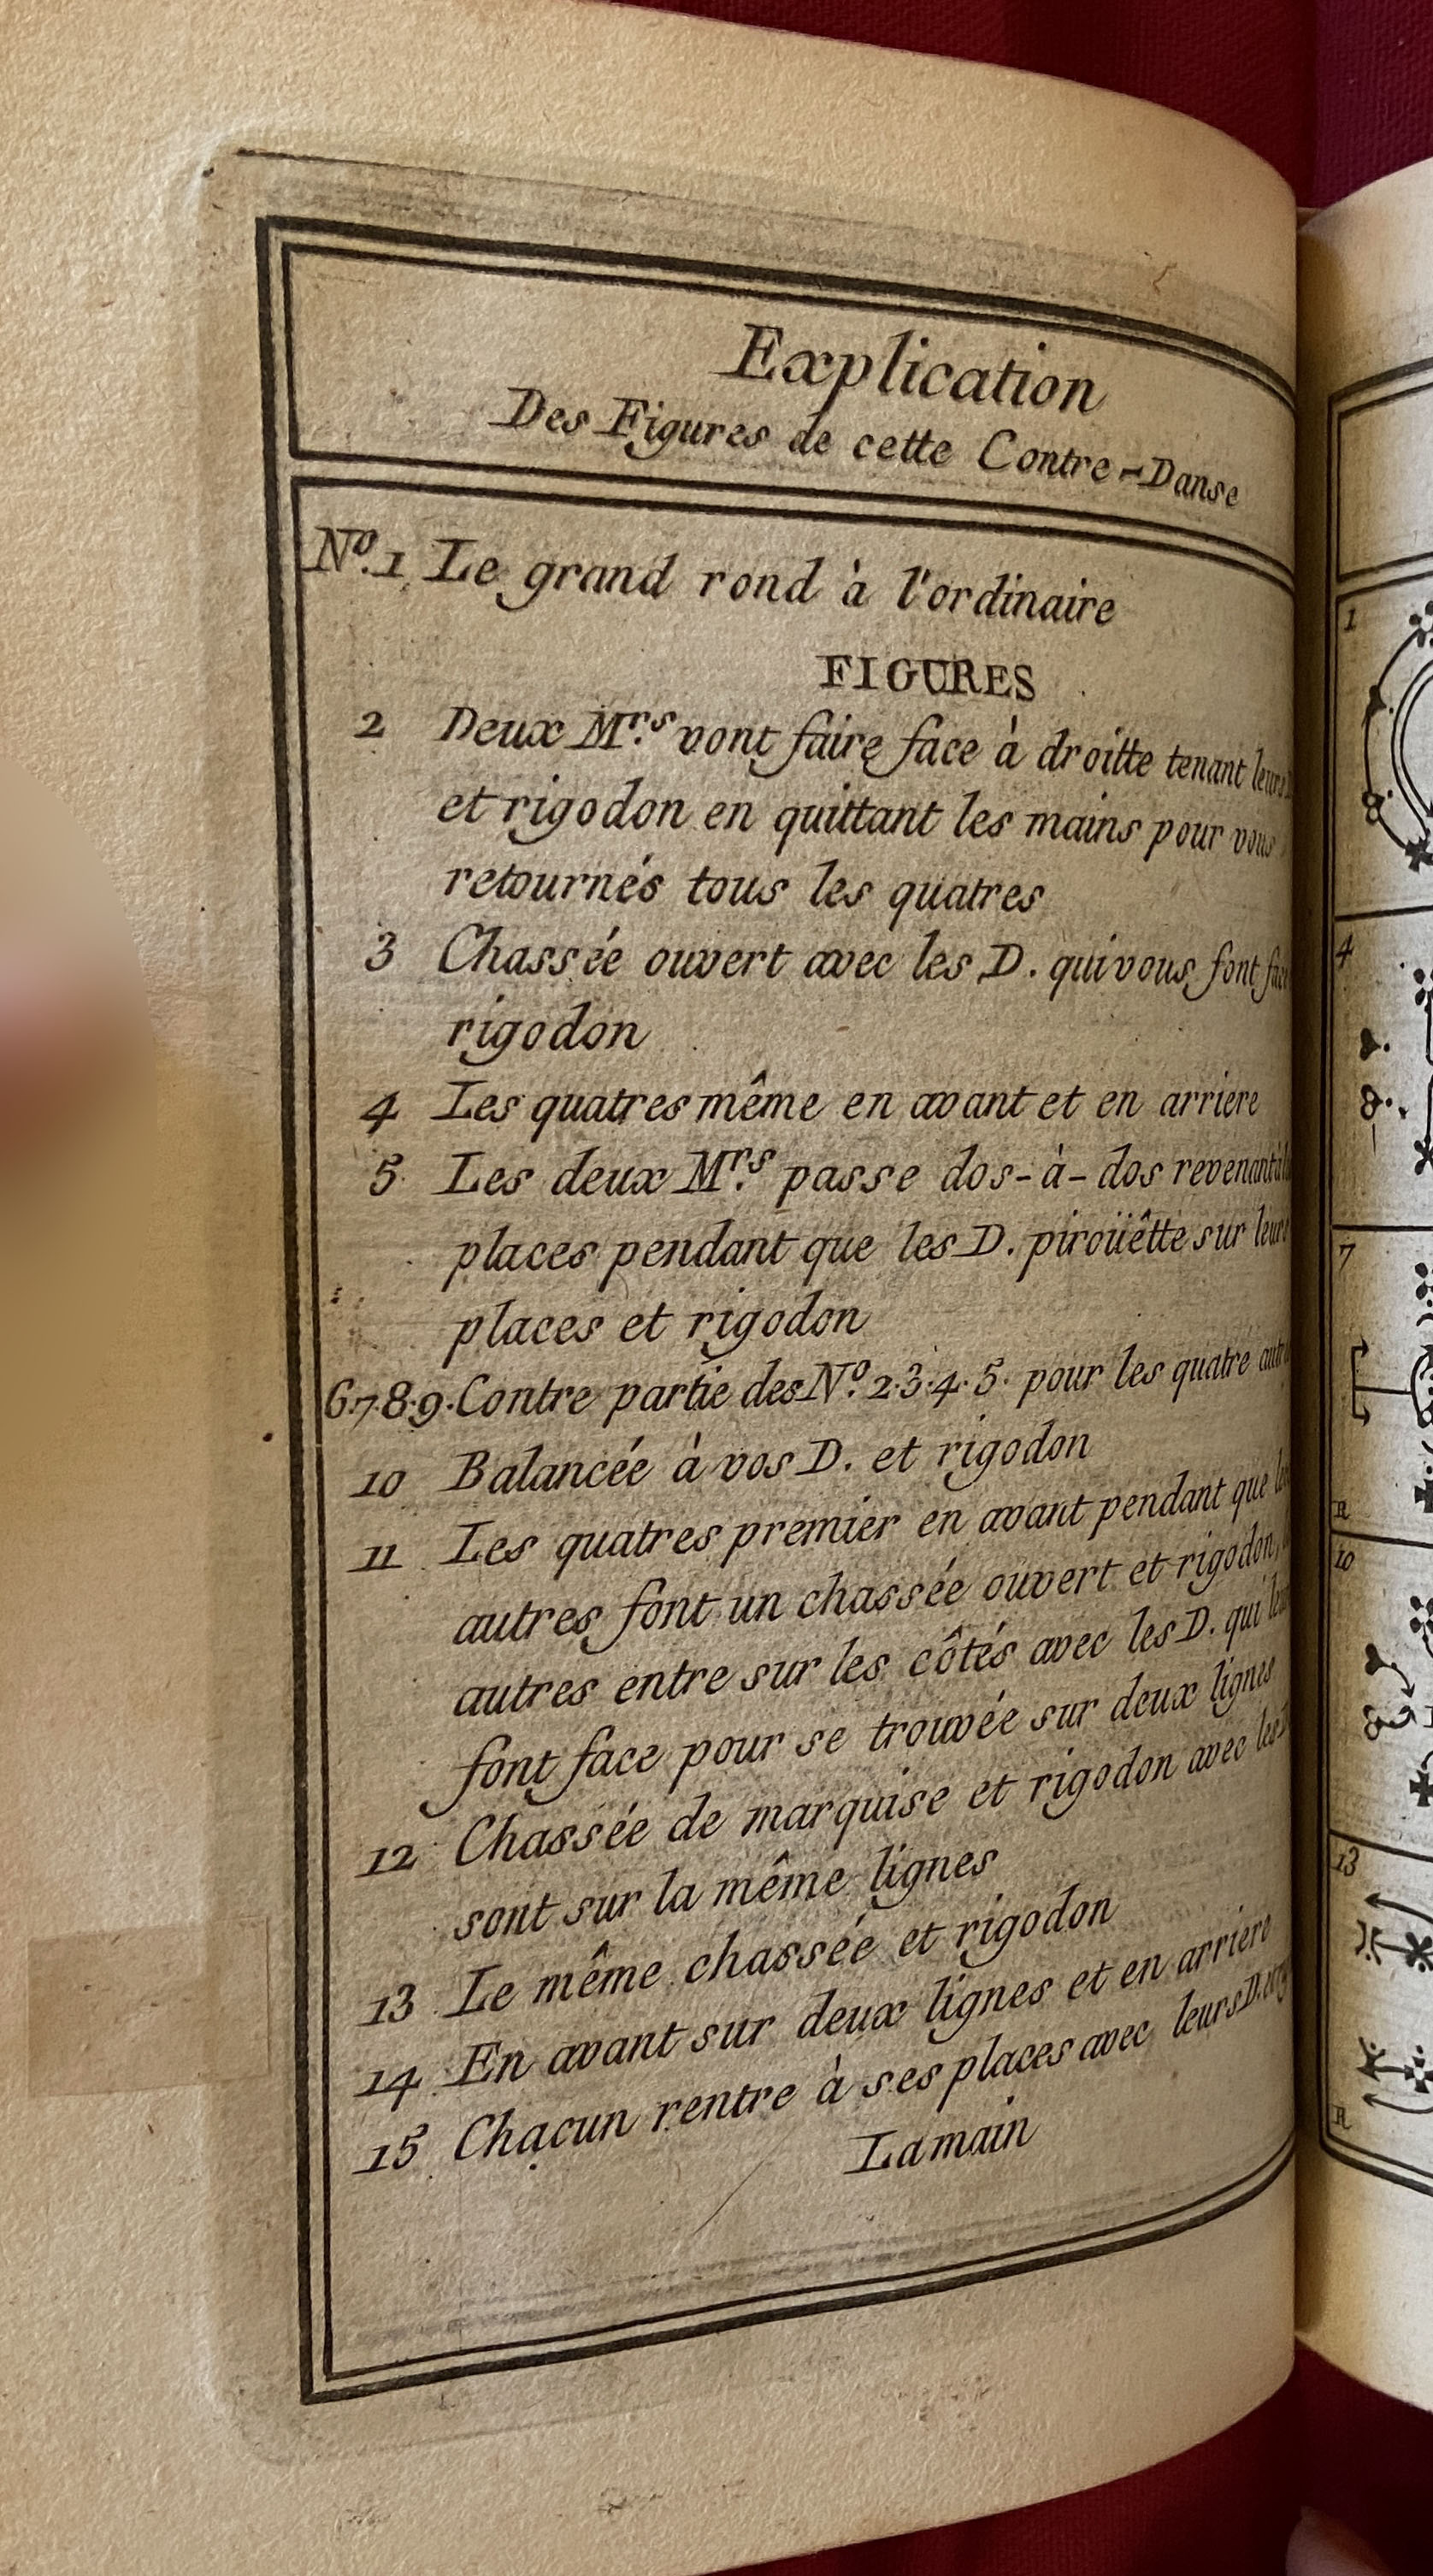 Explication
Des Figures de cette Contre-Danse
N.º 1 Le grand rond à l'ordinaire
FIGURES
2 Deux M.rs vont faire face à droitte tenant leurs
et rigodon en quittant les mains pour vous
retournés tous les quatres
3 Chassée ouvert avec les D. qui vous font face
rigodon
4 Les quatres même en avant et en arriere
5 Les deux M.rs passe dos-à-dos revenant
places pendant que les D. piroüêtte sur leurs
places et rigodon
6.7.8.9. Contre partie des N.º 2.3.4.5. pour les quatre autres
10 Balancée à vos D. et rigodon
11 Les quatres premier en avant pendant que les
autres font un chassée ouvert et rigodon,
autres entre sur les côtés avec les D. qui leur
font face pour se trouvée sur deux lignes
12 Chassée de marquise et rigodon avec les
sont sur la même lignes
13 Le même chassée et rigodon
14 En avant sur deux lignes et en arriere
15 Chacun rentre à ses places avec leurs D.
La main
1
4
7
R
10
13
R